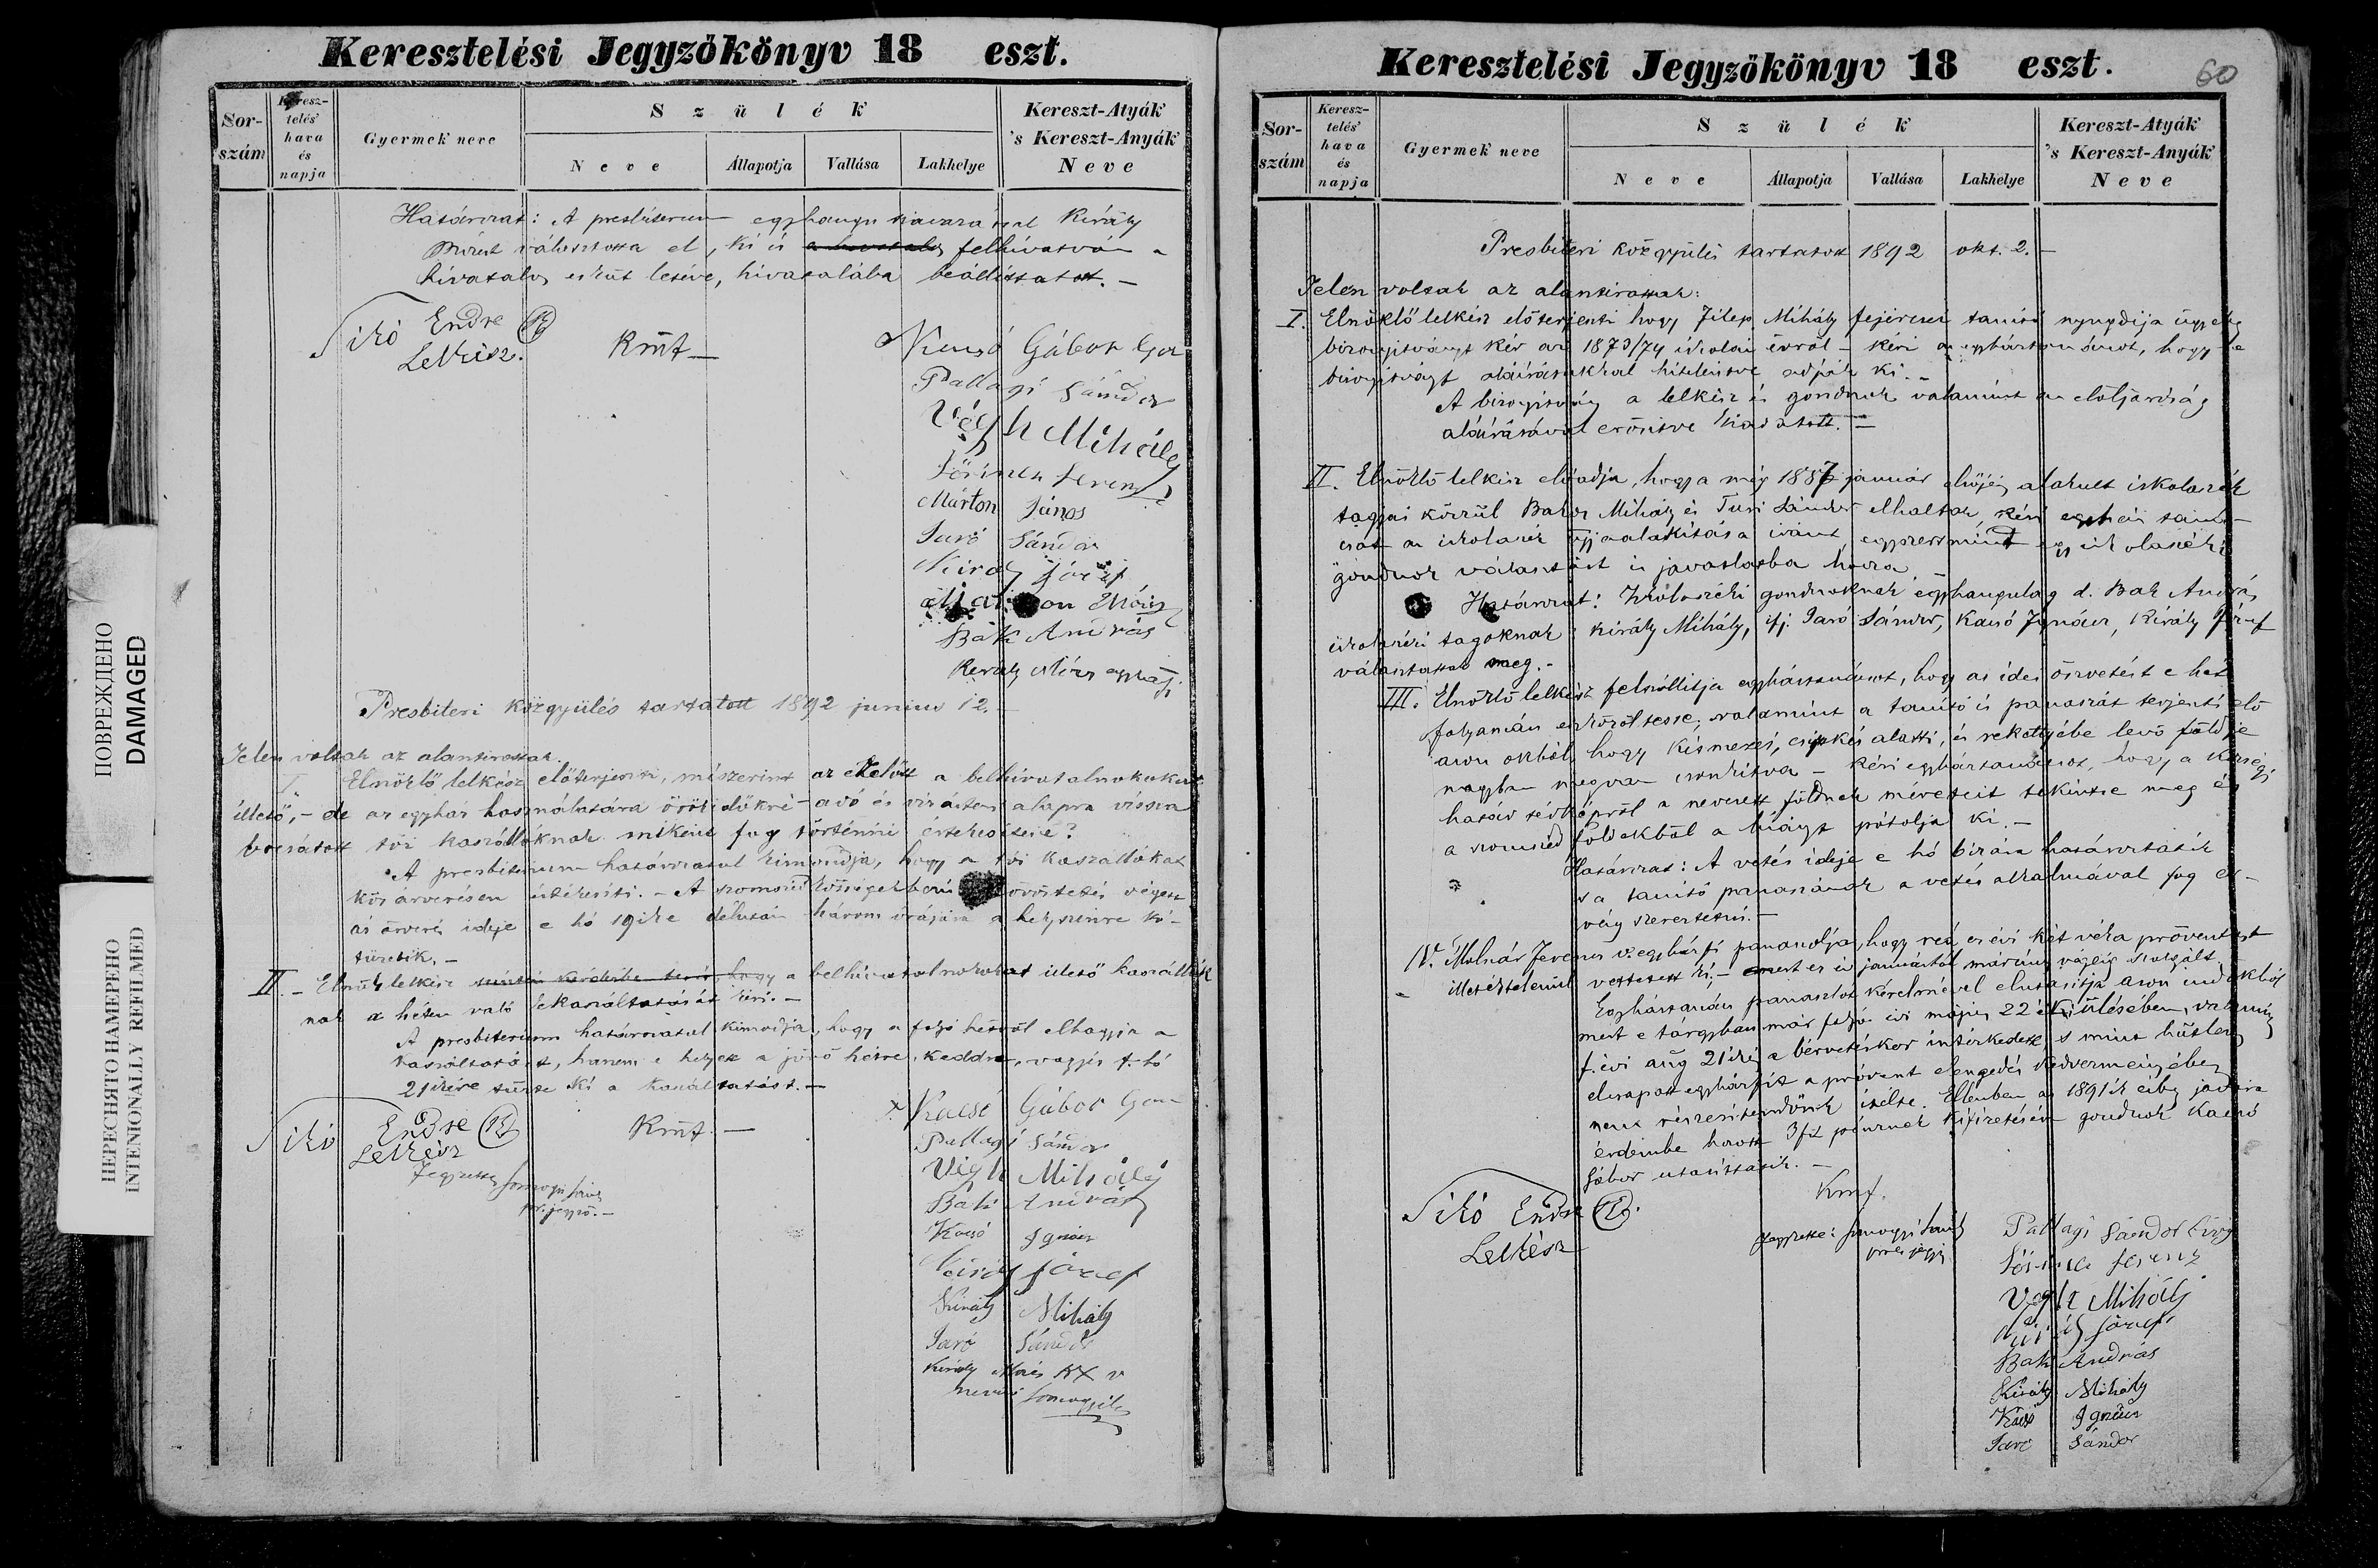 Keresztelési Jegyzökönyv 18 eszt.
Sor-szám
Keresz-telés hava és napja
Gyermek neve
Szülék
Neve
Állapotja
Vallása
Lakhelye
Kereszt-Atyák 's Kereszt-Anyák Neve
Határozat: A presbiterium egyhangu szavazattal Király
Mózest választotta el, ki is felhivatván a
hivatalos esküt letéve, hivatalába beállittatott. –
Sikó Endre
Lelkész.
Kmf –
Kacsó Gábor Gon
Pallagi Sándor
Végh Mihály
Lőrincz Ferencz
Márton János
Saró Sándor
Király József
Bak András
Király Mózes egyházfi
Presbiteri közgyülés tartatott 1892 junius 12. –
Jelen voltak az alantirottak.
I. Elnöklő lelkész előterjeszti, miszerint az ezelőtt a belhivatalnokokat
illető, – de az egyház használatára örök időkre adó és alapra vissza
bocsátott kaszállóknak miként fog történni értékesitése?
A presbiterium határozatul kimondja, hogy a kaszállókat
köz árverésen értékesiti. – A szomszéd községekbeni végett
az árverés ideje e hó 19ike délután három órájára a helyszinre ki-
tüzetik. –
II. – Elnök lelkész szintén kérdésbe teszi, hogy a belhivatalnokokat illető kaszállók
nak a héten való lekaszáltatását kéri. –
A presbiterium határozatul kimondja, hogy a folyó hétről elhagyja a
kaszáltatást, hanem e helyett a jövő hétre, keddre, vagyis f. hó
21ikére tüzte ki a kaszáltatást. –
Sikó Endre
Lelkész
Kmf. –
Jegyzette Somogyi
jegyző. –
Kacsó Gábor Gon
Pallagi Sándor
Végh Mihály
Bak András
Kacsó Ignácz
Király József
Király Mihály
Saró Sándor
Király Mózes KX v
Somogyi
Keresztelési Jegyzökönyv 18 eszt.
60
Sor-szám
Keresz-telés hava és napja
Gyermek neve
Szülék
Neve
Állapotja
Vallása
Lakhelye
Kereszt-Atyák 's Kereszt-Anyák Neve
Presbiteri közgyülés tartatott 1892 okt. 2. –
Jelen voltak az alantirottak:
I. Elnöklő lelkész előterjeszti hogy Filep Mihály tanitó nyugdija ügyében
bizonyitványt kér az 1873/74 iskolai évről – kéri az egyháztanácsot, hogy e
bizonyitványt aláirásukkal hitelesitve adják ki. –
A bizonyitvány a lelkész és gondnok valamint az elöljáróság
aláirásával erősitve kiadatott. –
II. Elnöklő lelkész előadja, hogy a még 1887 január elsőjén alakult iskolaszék
tagjai közzül Bakos Mihály és Tusi Sándor elhaltak, kéri egyház taná-
csot az iskolaszék ujjáalakitása iránt egyszersmind egy iskolaszéki
gondnok választást is javaslatba hozza –
Határozat: Iskolaszéki gondnoknak egyhangulag d. Bak András
iskolaszéki tagoknak: Király Mihály, ifj. Saró Sándor, Kacsó Ignácz, Király József
választattak meg. –
III. Elnöklő lelkész felszóllitja egyháztanácsot, hogy az idei őszvetést e hét
folyamán eszközöltesse, valamint a tanitó is panaszát terjeszti elő
azon okból, hogy Kismezei, csipkés alatti, és rekettyébe levő földje
nagyban megvan csonkitva – kéri egyháztanácsot, hogy a községi
határ térképről a nevezett földnek méreteit tekintse meg és
a szomszéd földekből a hiányt pótolja ki. –
Határozat: A vetés ideje e hó határoztatik
s a tanitó panaszának a vetés alkalmával fog ér-
vény szereztetni. –
IV. Molnár Ferencz v. egyházfi panaszolja, hogy reá ez évi két véka próventet
illetéktelenül vettetett ki, – mert ez év januártól márczius végéig szolgált
Egyháztanács panaszlot kérelmével elutasitja azon indokból
mert e targyban már folyó évi május 22 iki ülésében, valamint
f. évi aug 21iki a bérvetéskor intézkedett, s mint hűtlen
elcsapott egyházfit a próvent elengedés kedvezményében
nem részesitendőnek itélte. Ellenben az 1891ik évben javára
érdembe hozott 3 frt pénznek kifizetésére gondnok Kacsó
Gábor utasittatik. –
Kmf.
Sikó Endre
Lelkész
Jegyzette: Somogyi
Pallagi Sándor
Lőrincz Ferencz
Végh Mihály
Király József
Bak András
Király Mihály
Kacsó Ignácz
Saró Sándor
ПОВРЕЖДЕНО
DAMAGED
ПЕРЕСНЯТО НАМЕРЕНО
INTENIONALLY REFILMED